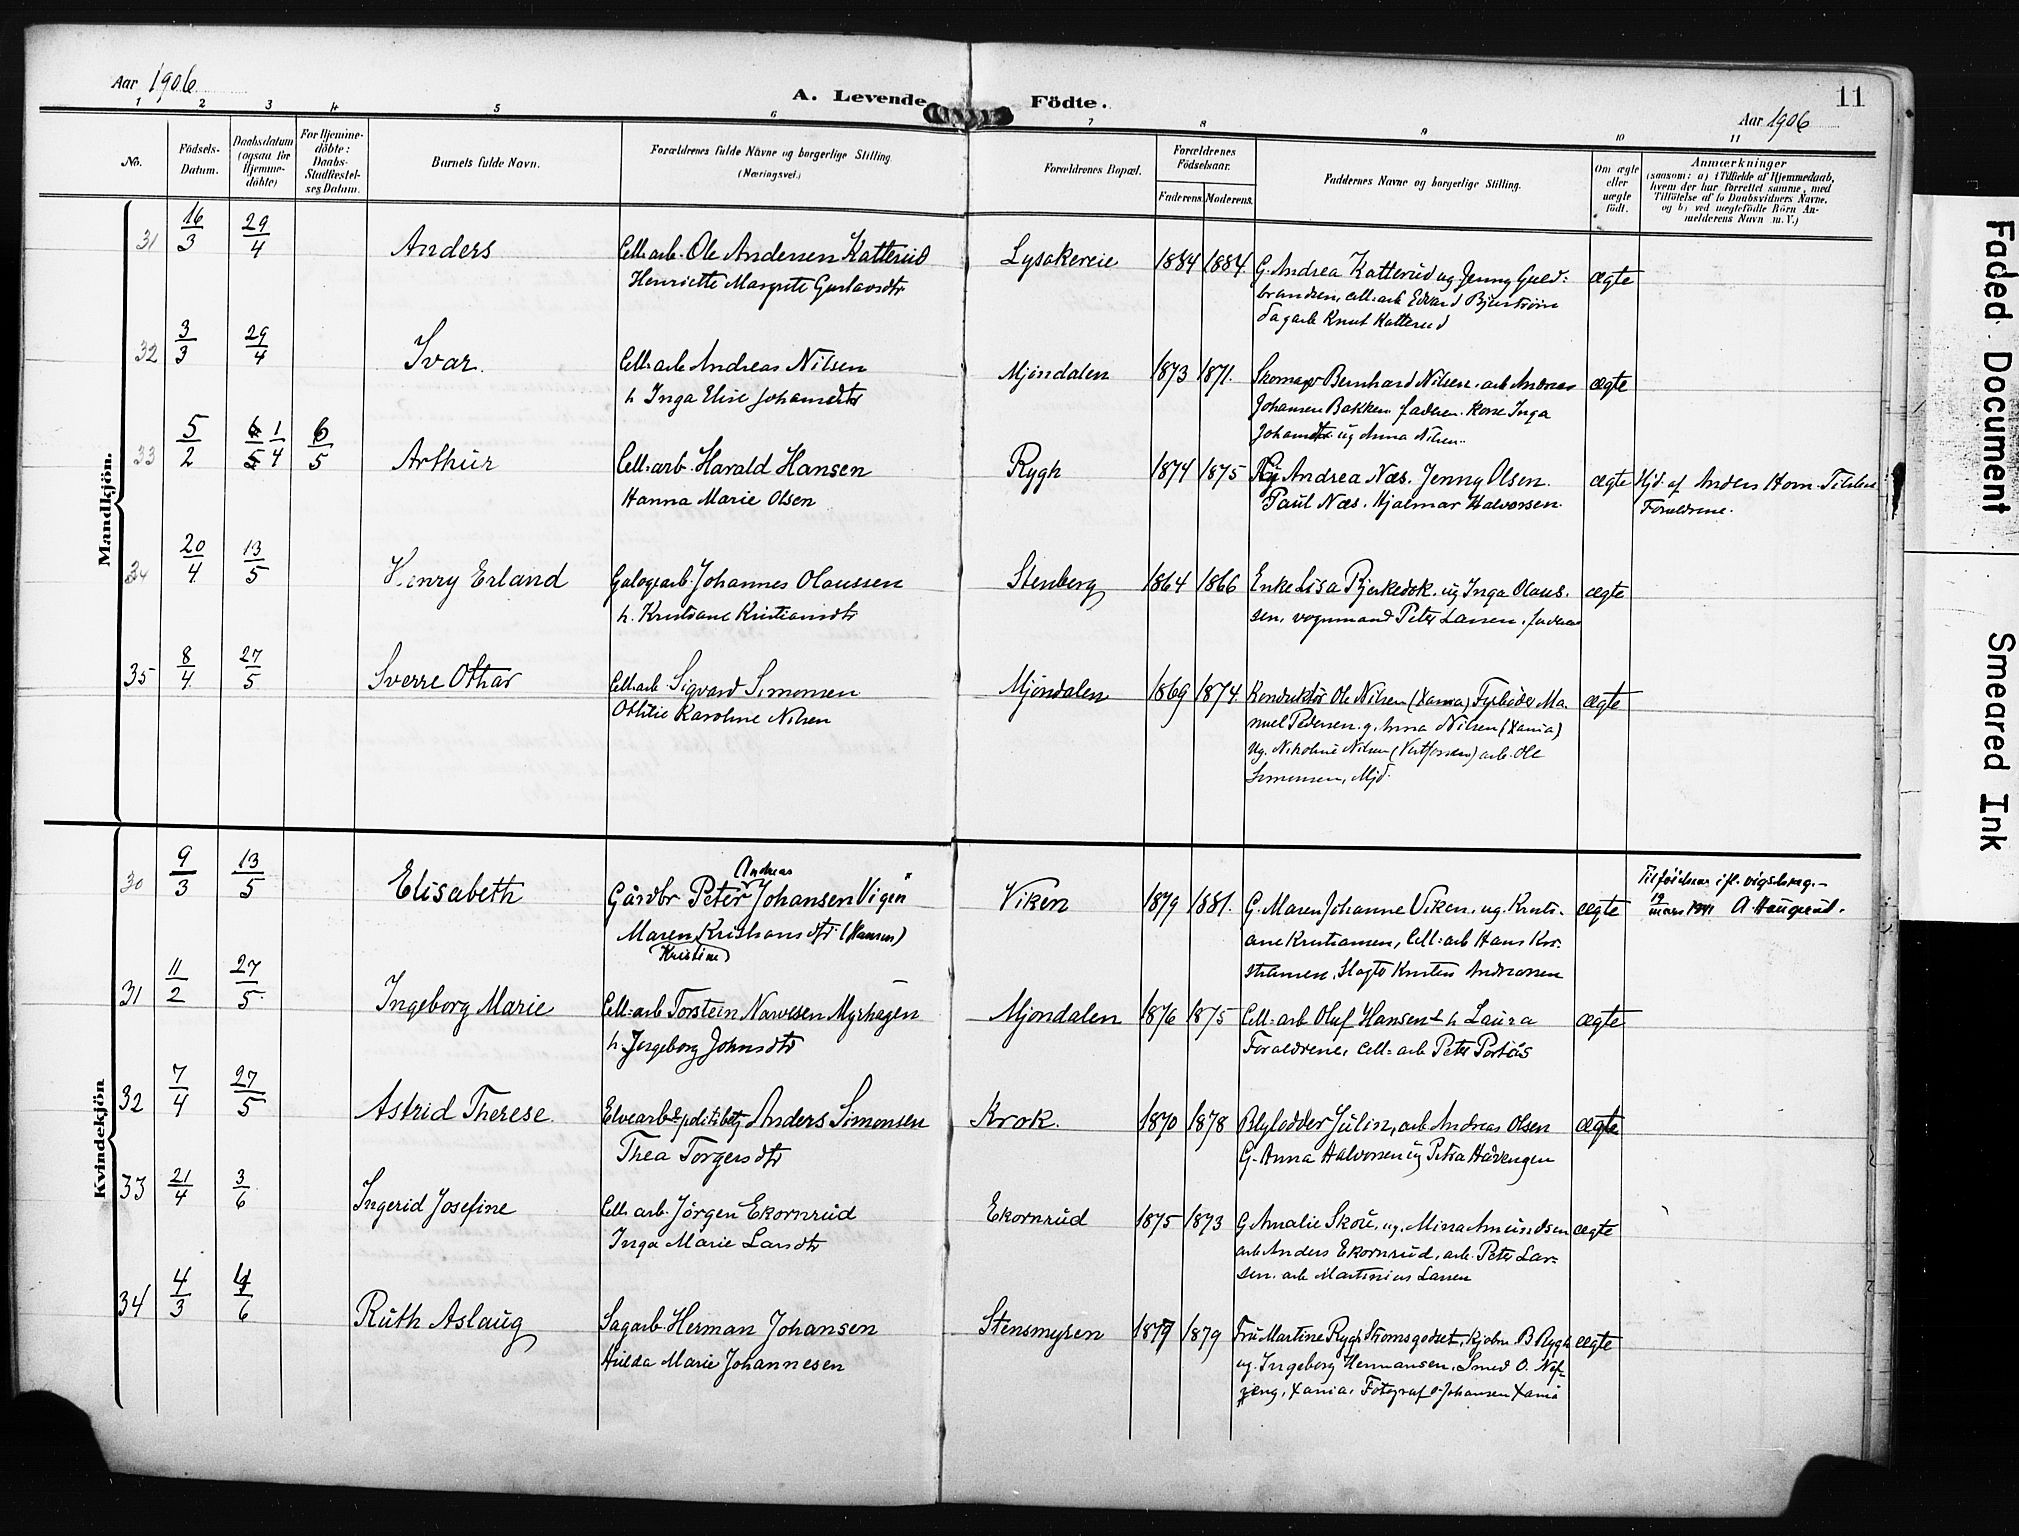 Aar 1906
A. Levende Födte.
11
Aar 1906
1 2 3 4 5 6 7 8 9 10 11
No.
Födsels-Datum.
Daabsdatum (ogsaa for Hjemme-döbte)
For Hjemme-döbte: Daabs-Stadfæstel-ses Datum.
Barnets fulde Navn.
Forældrenes fulde Navne og borgerlige Stilling.
(Næringsvei.)
Forældrenes Bopæl.
Forældrenes Födselsaar.
Faderens. Moderens.
Faddernes Navne og borgerlige Stilling.
Om ægte eller uægte födt.
Anmærkninger
(saasom: a) i Tilfælde af Hjemmedaab,
hvem der har forrettet samme, med
Tilföielse af to Daabsvidners Navne,
og b) ved uægtefödte Börn An-
melderens Navn m. V.)
Mandkjön.
31 16/3 29/4 Anders Cell: arb. Ole Andersen Katterud Lysakereie 1884 1884 G. Andrea Katterud ug Jenny Guld: ægte
Henriette Margrete Gustavsdtr brandsen, cell: arb Edvard Bjerström
dagarb Knut Katterud
32 3/3 29/4 Ivar. Cell: arb Andreas Nilsen Mjöndalen 1873 1871. Skomager Bernhard Nilsen. arb Andreas ægte
h Inga Elise Johansdtr Johansen Bakken faderen. kone Inga
Johansdtr ug Anna Nilsen.
33 5/2 6/5 1/4 6/5 Arthur Cell: arb. Harald Hansen Rygh 1874 1875 Andrea Næs. Jenny Olsen. ægte Hjd. af Anders Horn.
Hanna Marie Olsen Paul Næs. Hjalmar Halvorsen. Forældrene.
34 20/4 13/5 Henry Erland Galogearb. Johannes Olaussen Stenberg 1864 1866 Enke Lisa Bjerkedok. ug Inga Olaus. ægte
h. Kristiane Kristiansdtr sen, vognmand Peter Larsen. faderen
35 8/4 27/5 Sverre Othar Cell: arb Sigvard Simonsen Mjöndalen 1869 1874. Konduktör Ole Nilsen (Xania) Fyrböder Ma- ægte
Othilie Karoline Nilsen nuel Pedersen. g. Anna Nilsen (Xania)
ug. Nikoline Nilsen (Vestfossen) arb. Ole
Simonsen, Mjd.
Kvindekjön
30 9/3 13/5 Elisabeth Gårdbr Peter Andreas Johansen Vigen Viken 1879 1881. G. Maren Johanne Viken. ug. Kristi- ægte Tilföielser ifl. vigsbreg.-
Maren Kristiansdtr (Hansen) ane Kristiansen, Cell: arb Hans Kri- 19 mars 1941 A Haugerud.
(Kristine) stiansen, Slagter Kristen Andreassen
31 11/2 27/5. Ingeborg Marie Cell: arb Torstein Narvesen Myrhagen Mjöndalen 1876 1875 Cell: arb Oluf Hansen & h Laura ægte
h. Ingeborg Johnsdtr Forældrene, cell: arb Peter Portås
32 7/4 27/5 Astrid Therese. Elvearb & politibetj Anders Simonsen Krok. 1870 1878 Blylodder Julin, arb Andreas Olsen ægte
Thea Torgersdtr G. Anna Halvorsen ug Petra Håvengen
33 21/4 3/6 Ingerid Josefine Cell: arb. Jörgen Ekornrud Ekornrud 1875 1873 G Amalie Skou, ug. Mina Amundsen ægte
Inga Marie Larsdtr arb Anders Ekornrud, arb. Peter Lar-
sen. arb Martinius Larsen
34 4/3 4/6 Ruth Aslaug Sagarb. Herman Johansen Stensmyren 1879 1879 Fru Martine Rygh Strömsgodset, Kjöbm B Rygh ægte
Hulda Marie Johannesen ug. Ingeborg Hermansen, Smed O. Nof-
jeng, Xania, Fotograf Johansen Xania
Faded Document
Smeared Ink